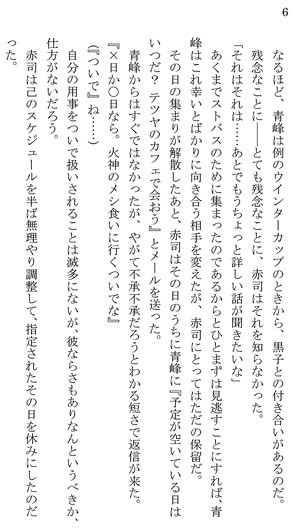 6
なるほど、青峰は例のウインターカップのときから、黒子との付き合いがあるのだ。
残念なことに――とても残念なことに、赤司はそれを知らなかった。
「それはそれは……あとでもうちょっと詳しい話が聞きたいな」
あくまでストバスのために集まったのであるからとひとまずは見逃すことにすれば、青
峰はこれ幸いとばかりに向き合う相手を変えたが、赤司にとってはただの保留だ。
その日の集まりが解散したあと、赤司はその日のうちに青峰に『予定が空いている日は
いつだ？ テツヤのカフェで会おう』とメールを送った。
青峰からはすぐではなかったが、やがて不承不承だろうとわかる短さで返信が来た。
『×日か〇日なら。火神のメシ食いに行くついでな』
(『ついで』ね……)
自分の用事をついで扱いされることは滅多にないが、彼ならさもありなんというべきか、
仕方がないだろう。
赤司は己のスケジュールを半ば無理やり調整して、指定されたその日を休みにしたのだ
った。